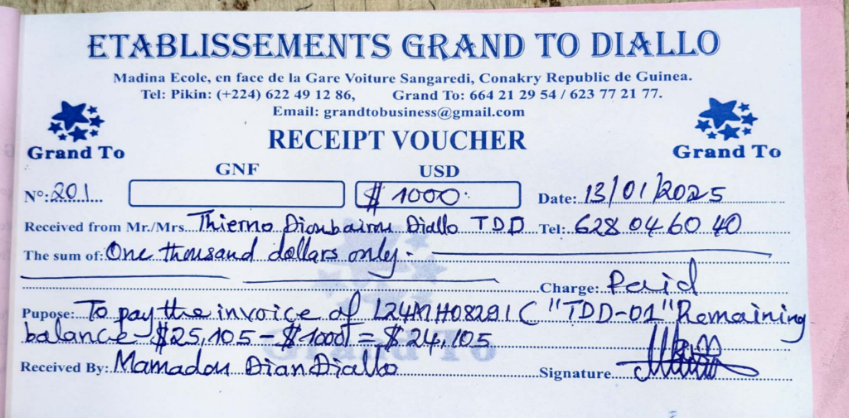 ETABLISSEMENTS GRAND TO DIALLO
Madina Ecole, en face de la Gare Voiture Sangaredi, Conakry Republic de Guinea.
Tel: Pikin: (+224) 622 49 12 86, Grand To: 664 21 29 54 / 623 77 21 77.
Email: grandtobusiness@gmail.com
RECEIPT VOUCHER
Grand To Grand To
GNF USD
N°: 201 $ 1000 Date: 13/01/2025
Received from Mr./Mrs Thierno Dioubairou Diallo TDD Tel: 628 04 60 40
The sum of: One thousand dollars only.
Charge: Paid
Pupose: To pay the invoice of "TDD-01" Remaining
balance $25,105 - $1000 = $24,105
Grand To
Received By: Mamadou Dian Diallo Signature